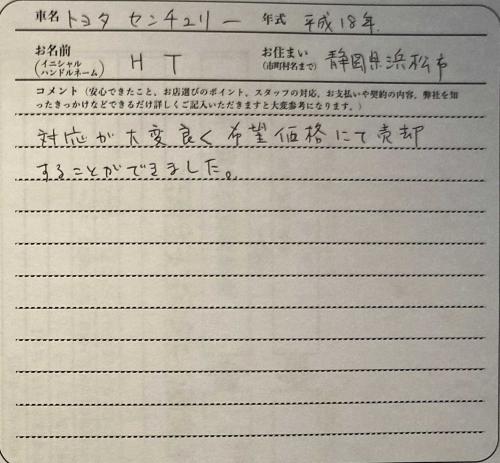 車名 トヨタ センチュリー 年式 平成18年
お名前 (イニシャル ハンドルネーム) H T お住まい (市町村名まで) 静岡県浜松市
コメント（安心できたこと、お店選びのポイント、スタッフの対応、お支払いや契約の内容、弊社を知
ったきっかけなどできるだけ詳しくご記入いただきますと大変参考になります。）
対応が大変良く希望価格にて売却
することができました。